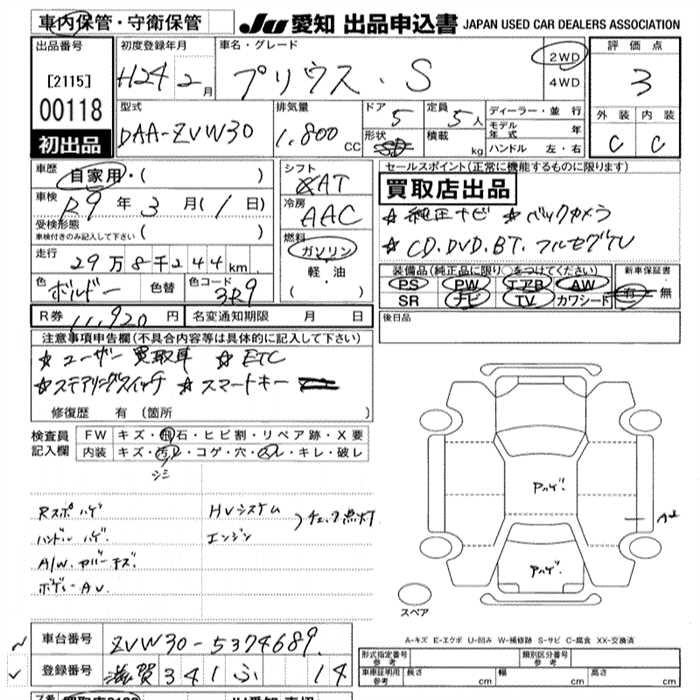 車内保管・守衛保管
JU 愛知 出品申込書 JAPAN USED CAR DEALERS ASSOCIATION
出品番号
[2115]
00118
初出品
初度登録年月
H24 2月
車名・グレード
プリウス・S
2WD
4WD
評価点
3
外装 内装
C C
型式
DAA-ZVW30
排気量
1,800 CC
ドア 5
形状
定員 5人
積載 kg
ディーラー・並行
モデル年式 年
ハンドル 左・右
車歴
自家用・( )
車検
R9年3月(1日)
受検形態
車検付きのみ記入して下さい ( )
走行
29万8千244km
色 ボルドー 色替 色コード 3R9
シフト
AT
冷房
AAC
燃料
ガソリン
軽・油
( ・ )
セールスポイント(正常に機能するものに限ります)
買取店出品
☆純正ナビ ☆バックカメラ
☆CD.DVD.BT.フルセグTV
装備品(純正品に限り○をつけてください)
PS PW エアB AW
SR ナビ TV カワシート
新車保証書
有・無
R券 11,920円 名変通知期限 月 日
後日品
注意事項申告欄(不具合内容等は具体的に記入して下さい)
☆ユーザー買取車 ☆ETC
☆ステアリングスイッチ ☆スマートキー
修復歴 有 (箇所
検査員記入欄
FW キズ・飛石・ヒビ割・リペア跡・X要
内装 キズ・汚れ・コゲ・穴・スレ・キレ・破レ
シミ
Rスポ ハゲ
ハンドル ハゲ
A/W.カバーキズ
ボディーAU
HVシステム
エンジン
チェック点灯
アハゲ.
アハゲ.
スペア
A-キズ E-エクボ U-凹み W-補修跡 S-サビ C-腐食 XX-交換済
車台番号 ZVW30-5374689
登録番号 滋賀 341 ふ 14
形式指定番号 参考
類別区分番号 参考
車庫証明用 参考 長さ cm 幅 cm 高さ cm